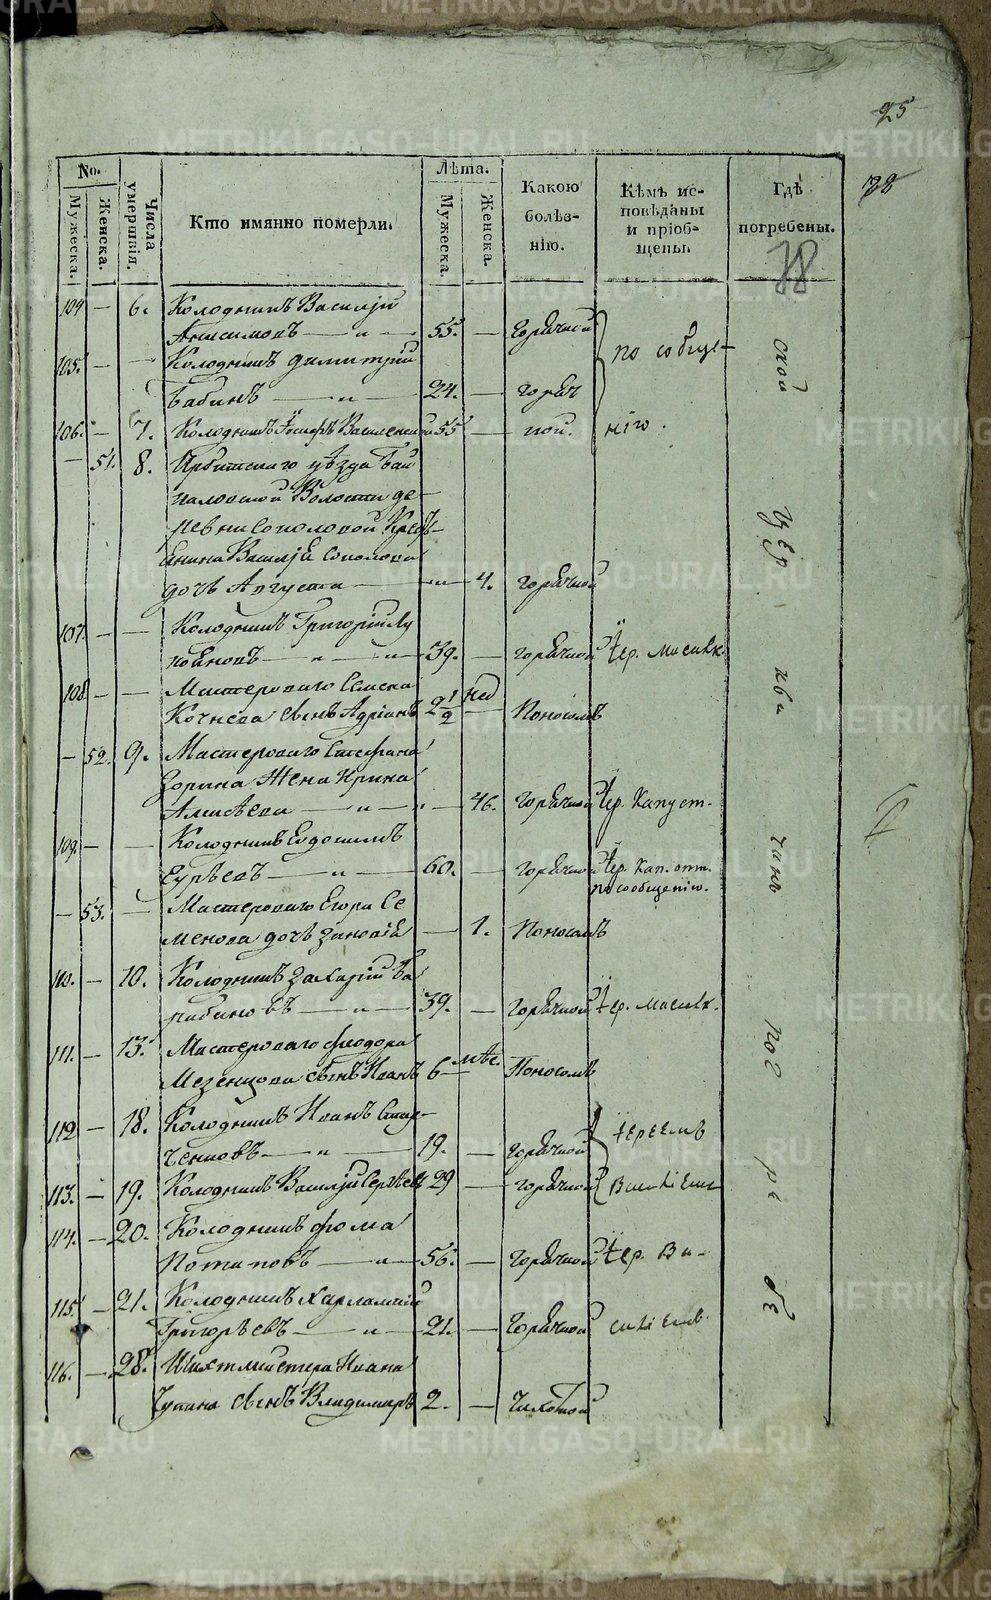 25
No.
Мужеска.
Женска.
Числа умершихъ.
Кто имянно померли.
Лѣта.
Мужеска.
Женска.
Какою болѣз-
нію.
Кѣмъ ис-
повѣданы
и пріоб-
щены.
Гдѣ
погребены.
104 — 6. Колодникъ Василій
Анисимовъ — „ — 55. — Горячкой
по сообще-
105. — — Колодникъ Димитрій
Бабинъ — „ — 24. — горяч
106. — 7. Колодникъ Василе 55 — кой. нію.
— 51. 8. Ирбитскаго уѣзда Бай
каловской Волости де-
ревни Соколовой Крестья-
нина Василія Соколова
дочь Августа — „ — 4. горячкой
107. — — Колодникъ Григорій Лу
кояновъ — „ — „ — 39. — горячкой
108 — — Мастероваго Семена
Кочнева сынъ Адріанъ 2½ нед — Поносомъ
— 52. 9. Мастероваго Стефана
Зорина Жена Ирина
— „ — „ — 46. горячкой Іер. Капуст.
109. — — Колодникъ Евдокимъ
Гурьевъ — „ — 60. — горячкой Іер. Кап.
по сообщенію.
— 53. — Мастероваго Егора Се
менова дочь Зиновія — 1. Поносомъ
110. — 10. Колодникъ Захарій Ба
рабановъ — „ — 39. — горячкой
111. — 13. Мастероваго Феодора
Мезенцова сынъ Иванъ 6 мѣс. Поносомъ
112 — 18. Колодникъ Иванъ
— „ — 19. — Горячкой Іереемъ
113. — 19. Колодникъ Василій Сергѣевъ 29 — горячкой
114. — 20. Колодникъ Фома
Потаповъ — „ — 56. — горячкой Іер. Ва-
115. — 21. Колодникъ Харлампій
Григорьевъ — „ — 21. — Горячкой силіемъ.
116. — 28. Шихтмейстера Ивана
сынъ Владимиръ 2. — Чихоткой